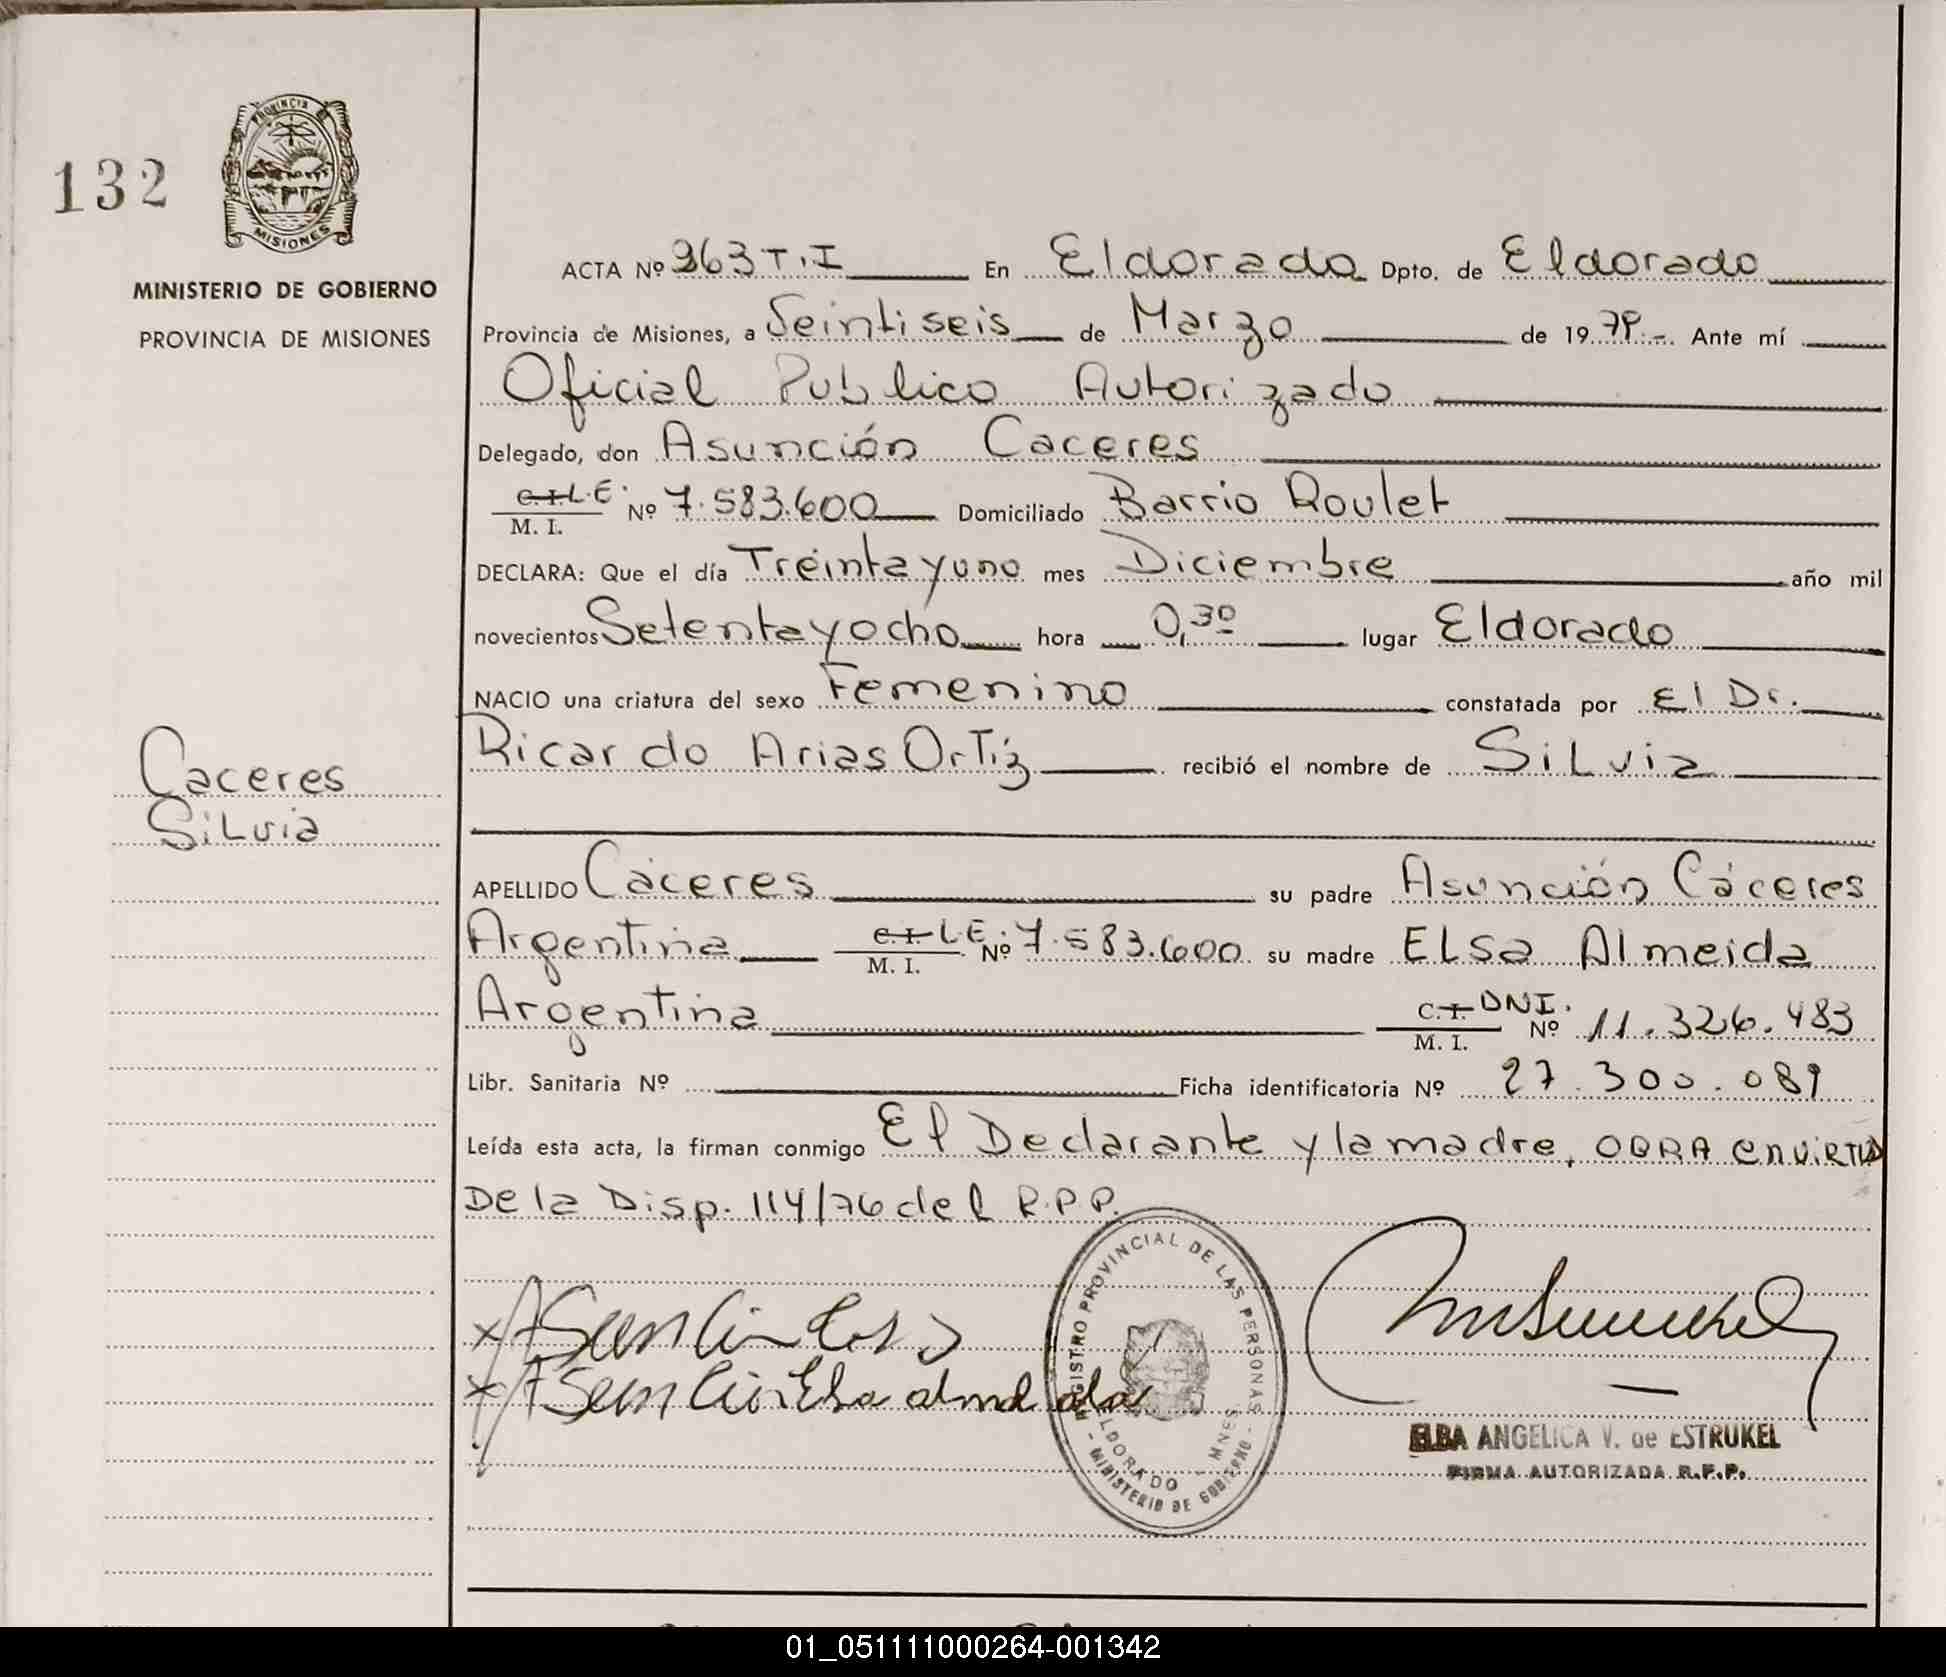 132
PROVINCIA
MISIONES
MINISTERIO DE GOBIERNO
PROVINCIA DE MISIONES
ACTA Nº 263 T.I En Eldorado Dpto. de Eldorado
Provincia de Misiones, a Veintiseis de Marzo de 1979.- Ante mí
Oficial Publico Autorizado
Delegado, don Asunción Caceres
C.I. L.E. M. I. Nº 7.583.600 Domiciliado Barrio Roulet
DECLARA: Que el día Treinta y uno mes Diciembre año mil
novecientos Setenta y ocho hora 0,30 lugar Eldorado
NACIO una criatura del sexo Femenino constatada por El Dr.
Ricardo Arias Ortíz recibió el nombre de SiLvia
Caceres
SiLvia
APELLIDO Cáceres su padre Asunción Cáceres
Argentina C.I. L.E. M. I. Nº 7.583.600 su madre ELsa Almeida
Argentina C.I. DNI. M. I. Nº 11.326.483
Libr. Sanitaria Nº Ficha identificatoria Nº 27.300.089
Leída esta acta, la firman conmigo El Declarante y la madre, OBRA en virtud
De la Disp. 114/76 del R.P.P.
REGISTRO PROVINCIAL DE LAS PERSONAS
ELDORADO - MNES
- MINISTERIO DE GOBIERNO -
Elsa
ELBA ANGELICA V. de ESTRUKEL
FIRMA AUTORIZADA R.P.P.
01_051111000264-001342